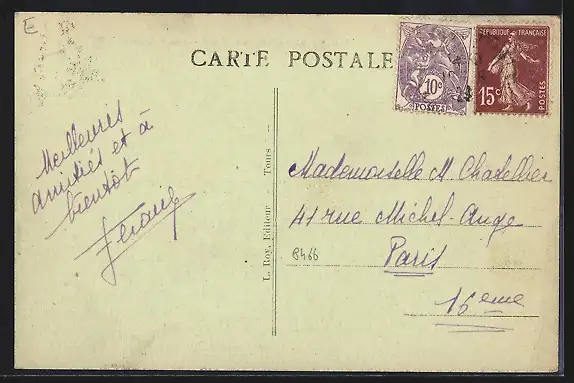 E
CARTE POSTALE
10c
POSTES
RÉPUBLIQUE FRANÇAISE
15c
POSTES
Meilleures
amitiés et à
bientôt
L. Roy, Editeur Tours
8466
Mademoiselle M. Chatellier
41 rue Michel-Ange
Paris
16eme